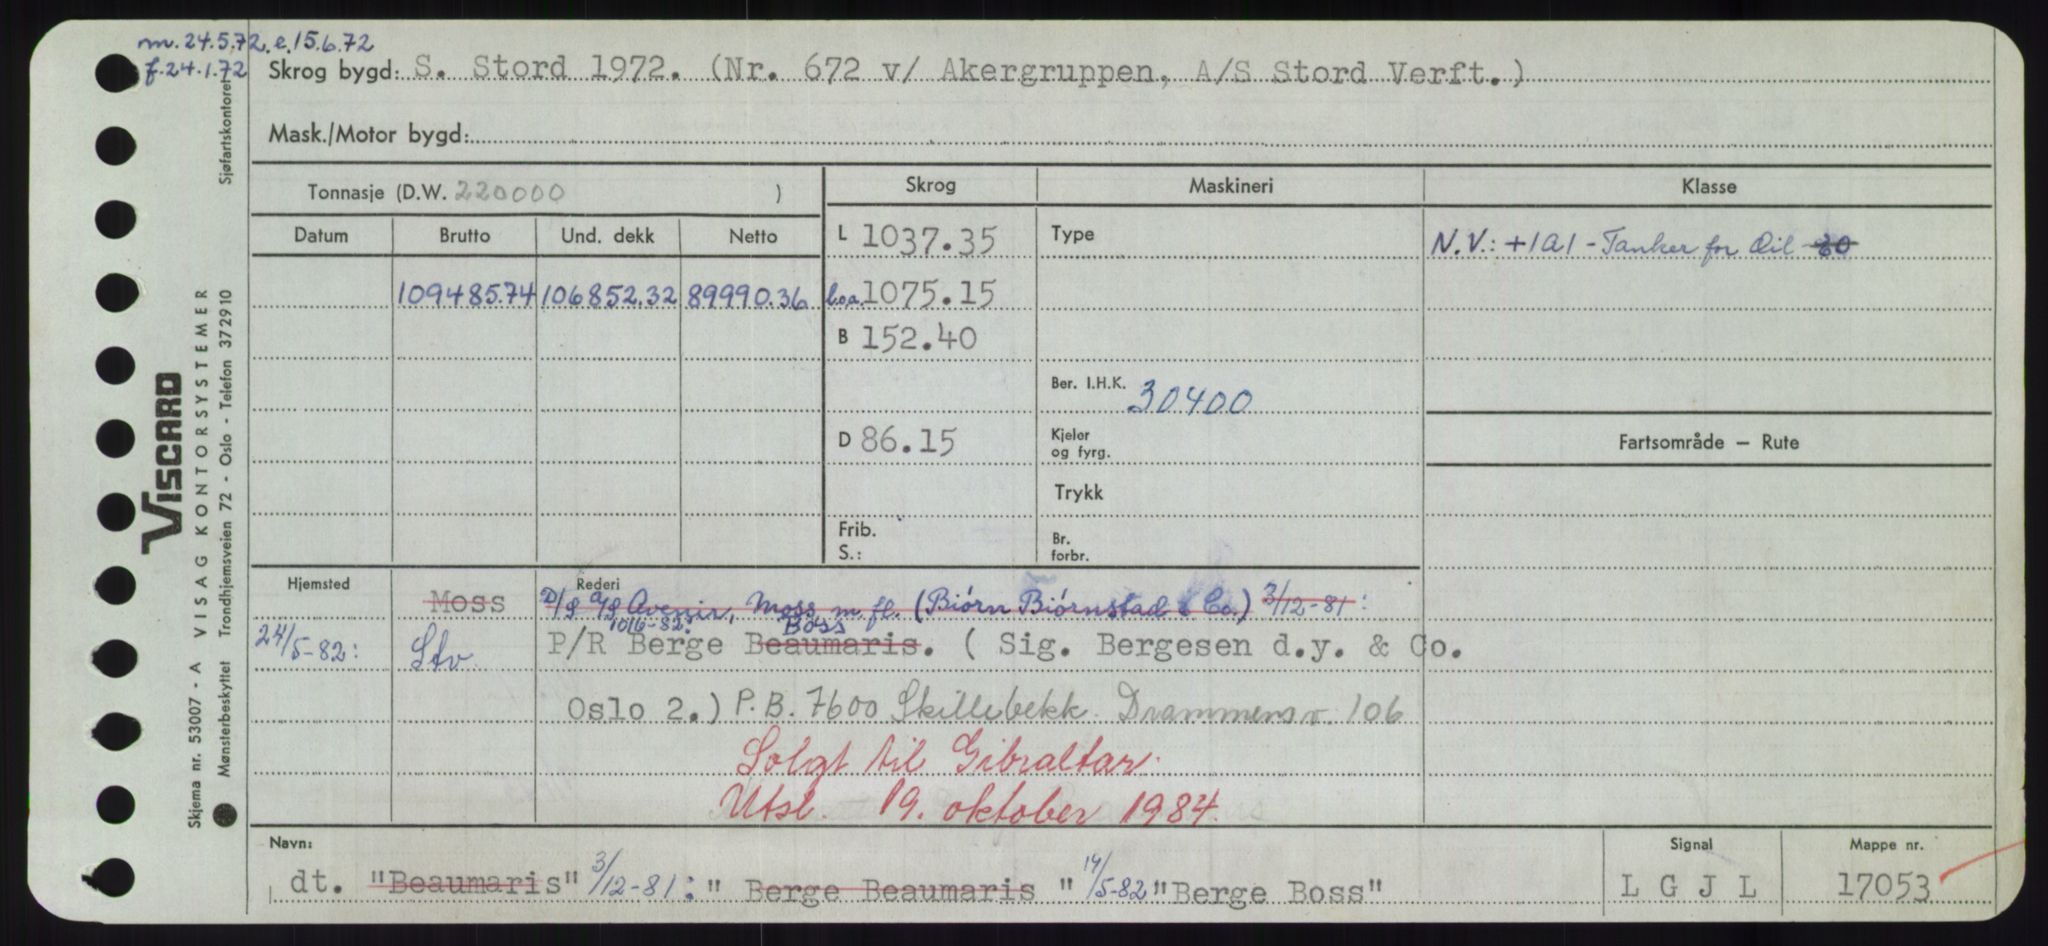 m. 24.5.72. e. 15.6.72
f. 24.1.72
Skrog bygd: S. Stord 1972. (Nr. 672 v/ Akergruppen, A/S Stord Verft.)
Mask./Motor bygd:
Tonnasje (D.W. 220000 )
Skrog
Maskineri
Klasse
Datum
Brutto
Und. dekk
Netto
L 1037.35
Type
N.V.: +1A1 - Tanker for Oil 20
109485.74 106852.32 89990.36
l.o.a. 1075.15
B 152.40
Ber. I.H.K. 30400
D 86.15
Kjeler
og fyrg.
Fartsområde — Rute
Trykk
Frib.
S.:
Br.
forbr.
Hjemsted
Rederi
Moss D/S A/S Avenir, Moss m. fl. (Biørn Biørnstad & Co.) 3/12-81:
10/6-82: Boss
24/5-82: Stv. P/R Berge Beaumaris. ( Sig. Bergesen d.y. & Co.
Oslo 2.) P.B. 7600 Skillebekk. Drammensv. 106
Solgt til Gibraltar.
Utsl. 19. oktober 1984.
Navn:
Signal
Mappe nr.
dt. "Beaumaris" 3/12-81: " Berge Beaumaris " 14/5-82 "Berge Boss"
L G J L
17053
VISCARD
Skjema nr. 53007 - A VISAG KONTORSYSTEMER
Mønsterbeskyttet Trondhjemsveien 72 - Oslo - Telefon 372910
Sjøfartskontoret